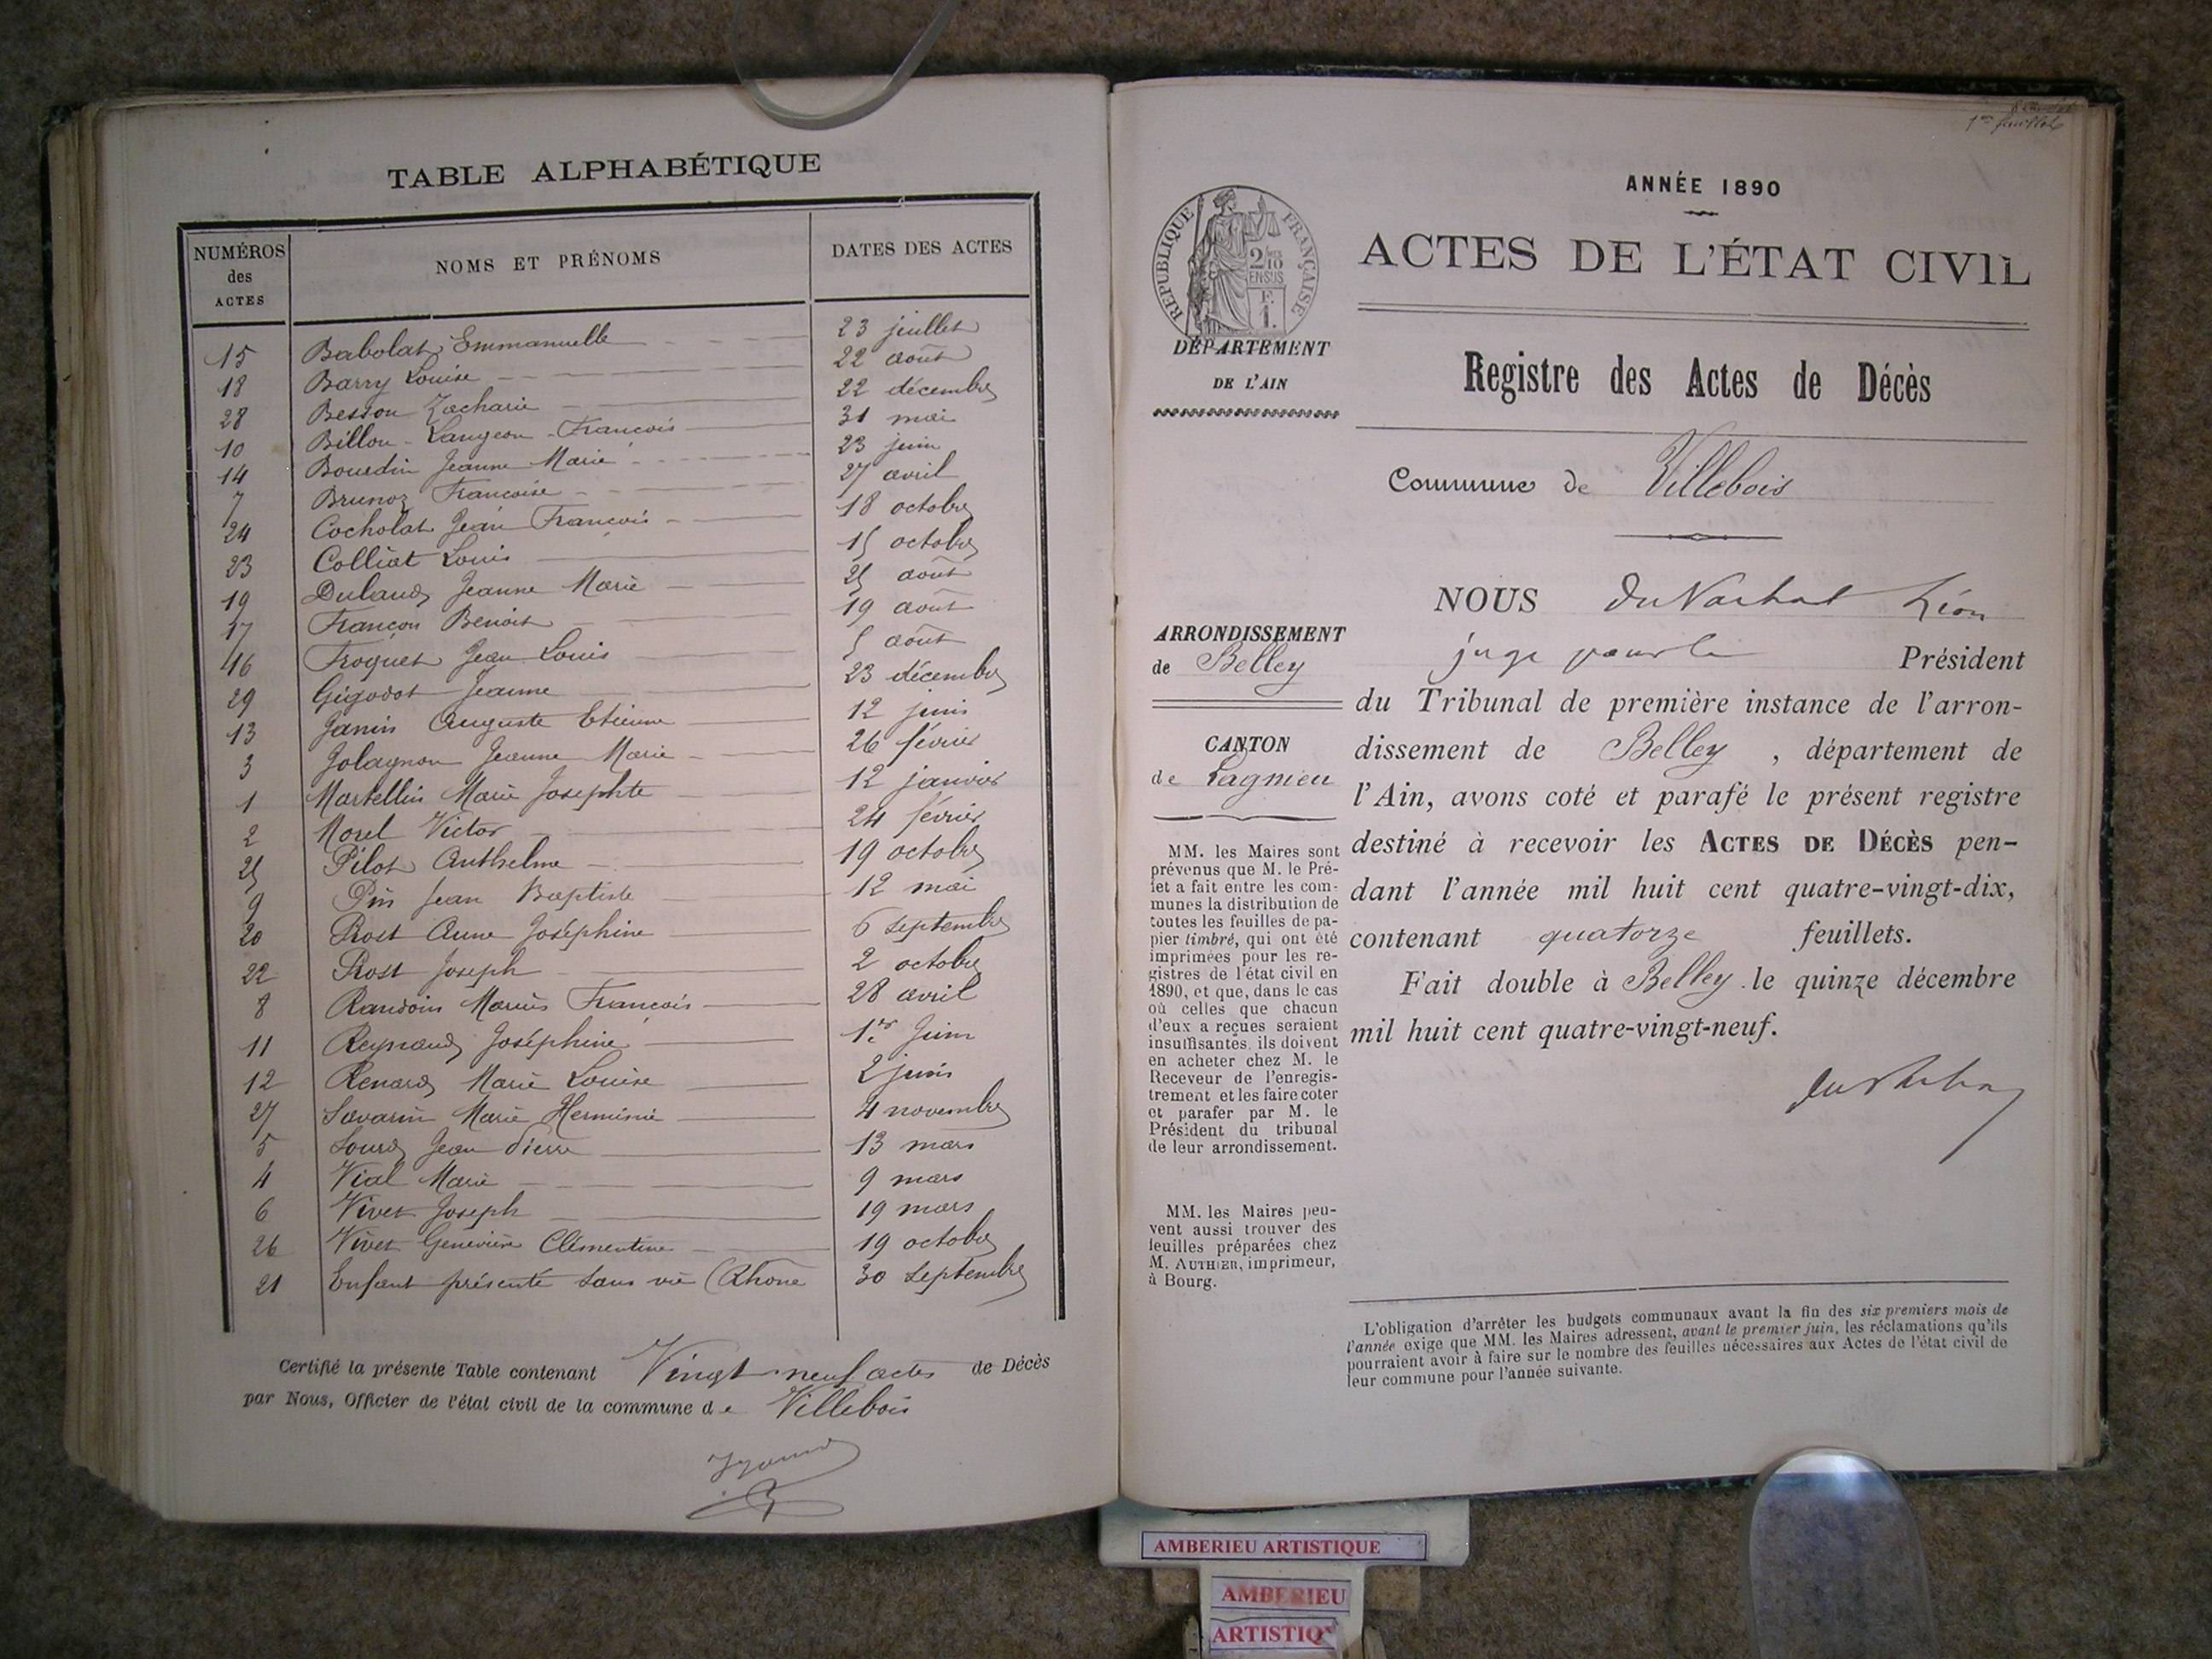 TABLE ALPHABÉTIQUE
NUMÉROS des ACTES NOMS ET PRÉNOMS DATES DES ACTES
15 Babolat Emmanuelle 23 juillet
18 Barry Louise 22 août
28 Besson Zacharie 22 décembre
10 Billon-Langeon François 31 mai
14 Bourdin Jeanne Marie 23 juin
7 Brunoz Françoise 27 avril
24 Cocholat Jean François 18 octobre
23 Colliat Louis 15 octobre
19 Jeanne Marie 25 août
17 Françon Benoit 19 août
16 Froquet Jean Louis 5 août
29 Gigodot Jeanne 23 décembre
13 Janin Auguste Etienne 12 juin
3 Jolagnon Jeanne Marie 26 février
1 Martellin Marie Josephte 12 janvier
2 Morel Victor 24 février
25 Pilot Anthelme 19 octobre
9 Pin Jean Baptiste 12 mai
20 Prost Anne Joséphine 6 septembre
22 Prost Joseph 2 octobre
8 Randoin Marius François 28 avril
11 Reynaud Joséphine 1er Juin
12 Renard Marie Louise 2 juin
27 Savarin Marie Herminie 4 novembre
5 Sourd Jean Pierre 13 mars
4 Vial Marie 9 mars
6 Vivet Joseph 19 mars
26 Vivet Geneviève Clémentine 19 octobre
21 Enfant présenté sans vie (Rhône 30 septembre
Certifié la présente Table contenant Vingt neuf actes de Décès
par Nous, Officier de l'état civil de la commune de Villebois
1er feuillet
ANNÉE 1890
RÉPUBLIQUE FRANÇAISE
2/10 EN SUS
F. 1.
ACTES DE L'ÉTAT CIVIL
DÉPARTEMENT
DE L'AIN
Registre des Actes de Décès
Commune de Villebois
ARRONDISSEMENT
de Belley
CANTON
de Lagnieu
MM. les Maires sont
prévenus que M. le Pré-
fet a fait entre les com-
munes la distribution de
toutes les feuilles de pa-
pier timbré, qui ont été
imprimées pour les re-
gistres de l'état civil en
1890, et que, dans le cas
où celles que chacun
d'eux a reçues seraient
insuffisantes, ils doivent
en acheter chez M. le
Receveur de l'enregis-
trement et les faire coter
et parafer par M. le
Président du tribunal
de leur arrondissement.
MM. les Maires peu-
vent aussi trouver des
feuilles préparées chez
M. AUTHIER, imprimeur,
à Bourg.
NOUS Léon
juge pour le Président
du Tribunal de première instance de l'arron-
dissement de Belley, département de
l'Ain, avons coté et parafé le présent registre
destiné à recevoir les ACTES DE DÉCÈS pen-
dant l'année mil huit cent quatre-vingt-dix,
contenant quatorze feuillets.
Fait double à Belley. le quinze décembre
mil huit cent quatre-vingt-neuf.
L'obligation d'arrêter les budgets communaux avant la fin des six premiers mois de
l'année exige que MM. les Maires adressent, avant le premier juin, les réclamations qu'ils
pourraient avoir à faire sur le nombre des feuilles nécessaires aux Actes de l'état civil de
leur commune pour l'année suivante.
AMBERIEU ARTISTIQUE
AMBERIEU
ARTISTIQ